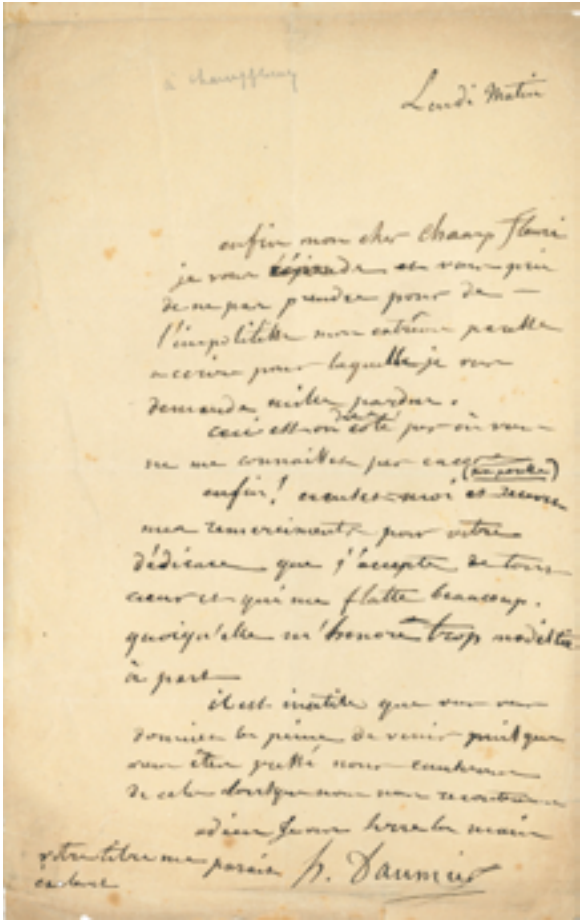 à champfleury
Lundi Matin
enfin mon cher Champ fleuri
je vous réponds et vous prie
de ne pas prendre pour de
l'impolitesse mon extrême paresse
a ecrire pour laquelle je vous
demande mille pardons.
ceci est un coté par où vous
ne me connaissez pas encore
enfin! excusez-moi et recevez
mes remerciments pour votre
dédicace que j'accepte de tout
cœur et qui me flatte beaucoup.
quoiqu'elle m'honore trop modestie
à part
il est inutile que vous vous
donniez la peine de venir puisque
vous êtes pressé nous causerons
de cela lorsque nous nous
adieu je vous serre la main
votre titre me parait h. Daumier